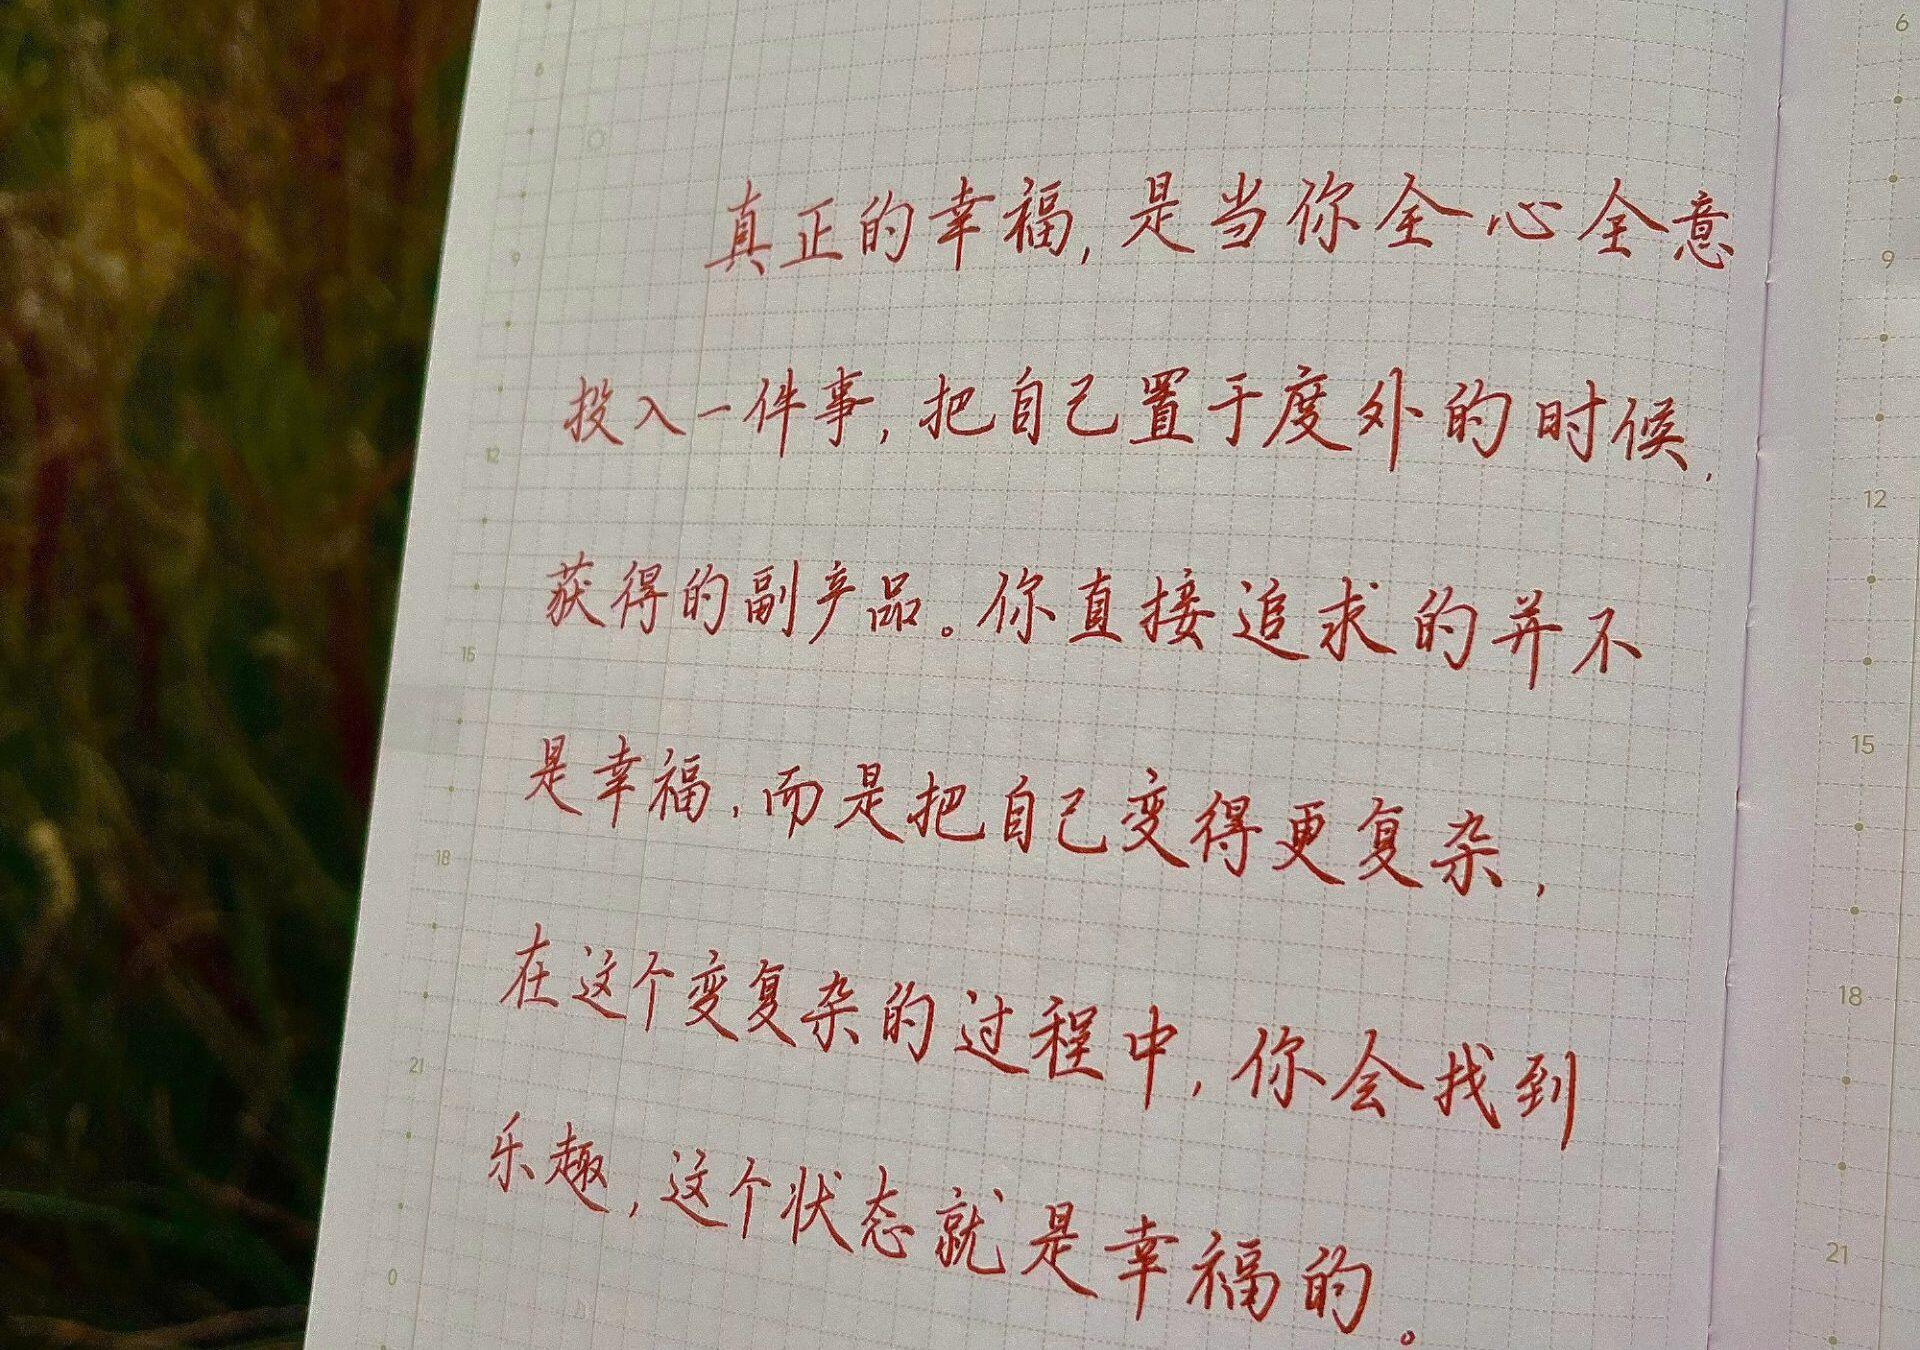 真正的幸福,是当你全心全意
投入一件事,把自己置于度外的时候,
获得的副产品。你直接追求的并不
是幸福,而是把自己变得更复杂,
在这个变复杂的过程中,你会找到
乐趣,这个状态就是幸福的。
6
9
12
15
18
21
0
6
9
12
15
18
21